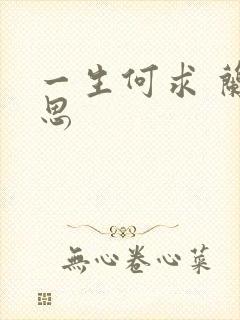 一生何求 蘭
思
無心卷心菜